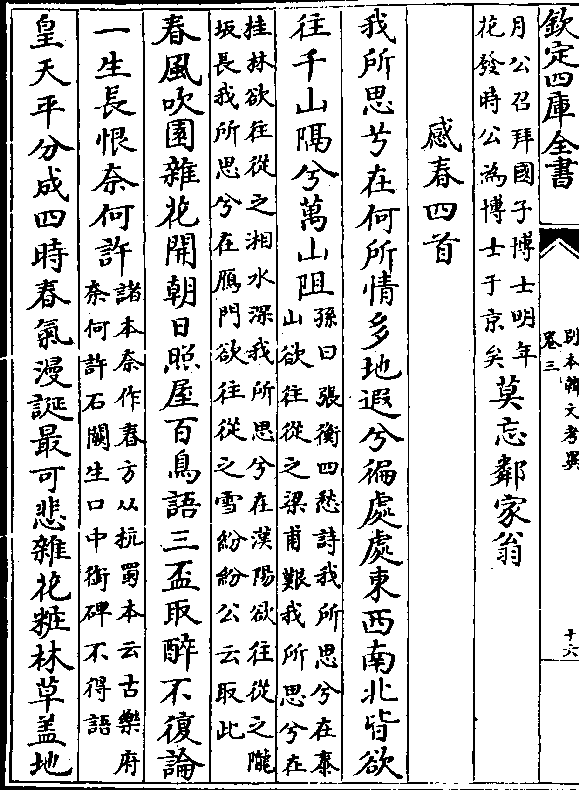 欽定四庫全書
別本韓文考異
卷三
十六
月公召拜國子博士明年
花發時公為博士于京矣
莫忘鄰家翁
感春四首
我所思兮在何所情多地遐兮徧處處東西南北皆欲
往千山隔兮萬山阻
孫曰張衡四愁詩我所思兮在泰
山欲往從之梁甫艱我所思兮在
桂林欲往從之湘水深我所思兮在漢陽欲往從之隴
坂長我所思兮在鴈門欲往從之雪紛紛公云取此
春風吹園雜花開朝日照屋百鳥語三盃取醉不復論
一生長恨奈何許
諸本奈作春方从杭蜀本云古樂府
奈何許石闕生口中銜碑不得語
皇天平分成四時春氣漫誕最可悲雜花粧林草盖地